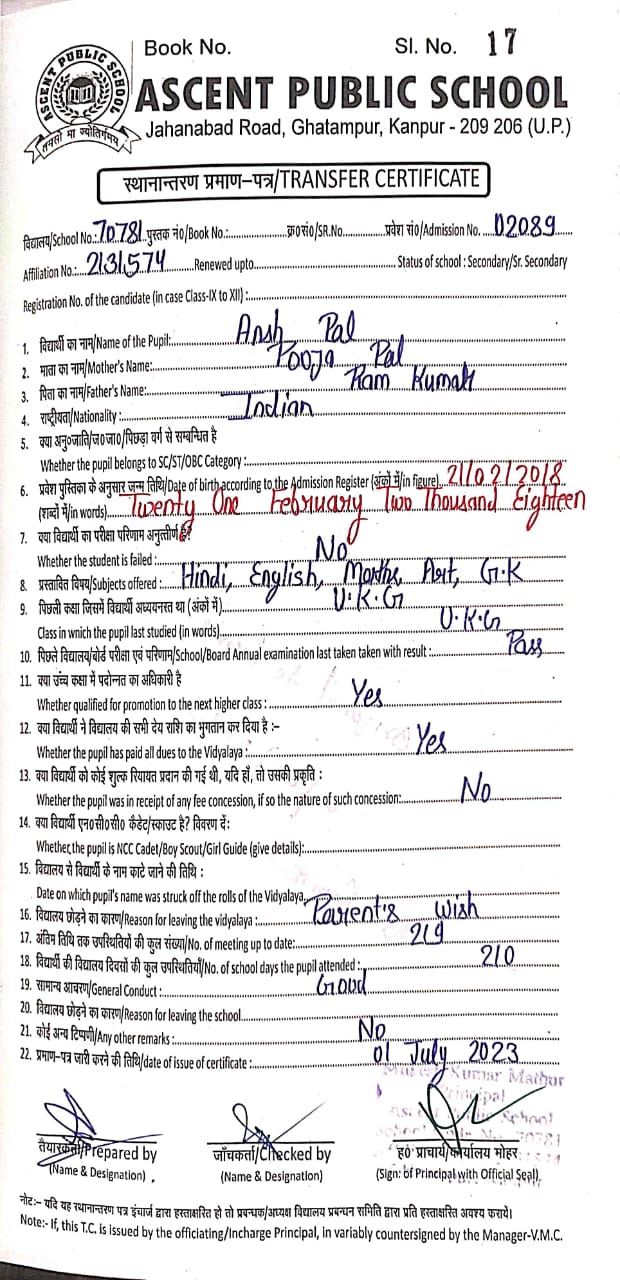 Book No. Sl. No. 17
ASCENT PUBLIC SCHOOL
तमसो मा ज्योतिर्गमय
ASCENT PUBLIC SCHOOL
Jahanabad Road, Ghatampur, Kanpur - 209 206 (U.P.)
स्थानान्तरण प्रमाण-पत्र/TRANSFER CERTIFICATE
विद्यालय/School No.: 70781 पुस्तक नं०/Book No.: क्र०सं०/SR.No. प्रवेश सं०/Admission No. 02089
Affiliation No.: 2131574 Renewed upto Status of school : Secondary/Sr. Secondary
Registration No. of the candidate (in case Class-IX to XII) :
1. विद्यार्थी का नाम/Name of the Pupil: Ansh Pal
2. माता का नाम/Mother's Name: Pooja Pal
3. पिता का नाम/Father's Name: Ram Kumar
4. राष्ट्रीयता/Nationality : Indian
5. क्या अनु०जाति/ज०जा०/पिछड़ा वर्ग से सम्बन्धित है
Whether the pupil belongs to SC/ST/OBC Category :
6. प्रवेश पुस्तिका के अनुसार जन्म तिथि/Date of birth according to the Admission Register (अंकों में/in figure) 21/02/2018
(शब्दों में/in words) Twenty One February Two Thousand Eighteen
7. क्या विद्यार्थी का परीक्षा परिणाम अनुत्तीर्ण है?
Whether the student is failed : No
8. प्रस्तावित विषय/Subjects offered : Hindi, English, Maths, Art, G.K
9. पिछली कक्षा जिसमें विद्यार्थी अध्ययनरत था (अंकों में) U.K.G
Class in wnich the pupil last studied (in words) U.K.G
10. पिछले विद्यालय/बोर्ड परीक्षा एवं परिणाम/School/Board Annual examination last taken taken with result : Pass
11. क्या उच्च कक्षा में पदोन्नत का अधिकारी है
Whether qualified for promotion to the next higher class : Yes
12. क्या विद्यार्थी ने विद्यालय की सभी देय राशि का भुगतान कर दिया है :-
Whether the pupil has paid all dues to the Vidyalaya : Yes
13. क्या विद्यार्थी को कोई शुल्क रियायत प्रदान की गई थी, यदि हाँ, तो उसकी प्रकृति :
Whether the pupil was in receipt of any fee concession, if so the nature of such concession: No
14. क्या विद्यार्थी एन०सी०सी० कैडेट/स्काउट है? विवरण दें:
Whether, the pupil is NCC Cadet/Boy Scout/Girl Guide (give details):
15. विद्यालय से विद्यार्थी के नाम काटे जाने की तिथि :
Date on which pupil's name was struck off the rolls of the Vidyalaya
16. विद्यालय छोड़ने का कारण/Reason for leaving the vidyalaya : Parent's Wish
17. अंतिम तिथि तक उपस्थितियों की कुल संख्या/No. of meeting up to date: 219
18. विद्यार्थी की विद्यालय दिवसों की कुल उपस्थितियाँ/No. of school days the pupil attended : 210
19. सामान्य आचरण/General Conduct : Good
20. विद्यालय छोड़ने का कारण/Reason for leaving the school
21. कोई अन्य टिप्पणी/Any other remarks : No
22. प्रमाण-पत्र जारी करने की तिथि/date of issue of certificate : 01 July 2023
Kumar Mathur
Principal
School
तैयारकर्ता/Prepared by जाँचकर्ता/Checked by ह० प्राचार्य/कार्यालय मोहर
(Name & Designation) (Name & Designation) (Sign: of Principal with Official Seal)
नोट:- यदि यह स्थानान्तरण पत्र इंचार्ज द्वारा हस्ताक्षरित हो तो प्रबन्धक/अध्यक्ष विद्यालय प्रबन्धन समिति द्वारा प्रति हस्ताक्षरित अवश्य करायें।
Note:- If, this T.C. is issued by the officiating/Incharge Principal, in variably countersigned by the Manager-V.M.C.